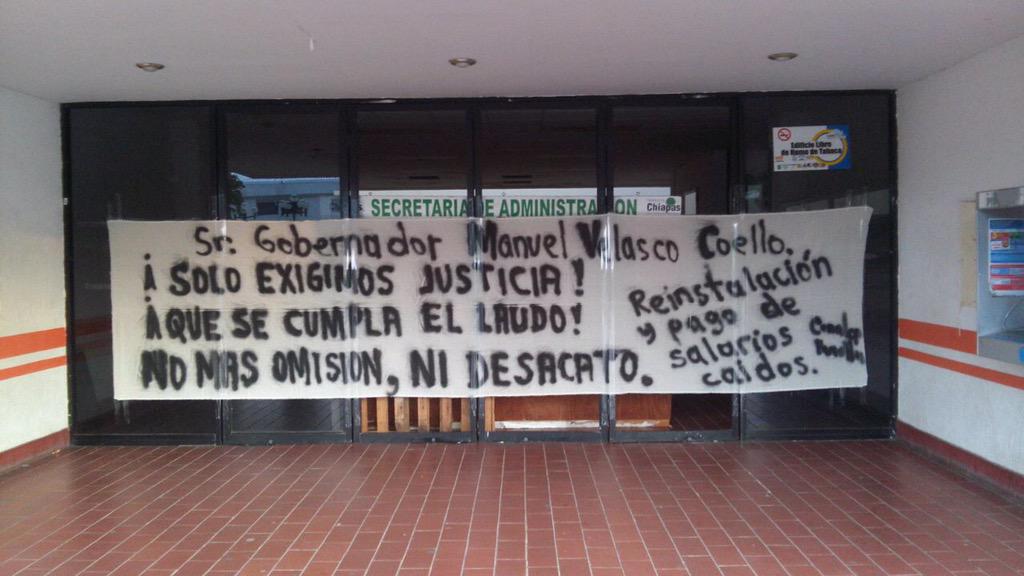 Edificio Libre
de Humo de Tabaco
SECRETARIA DE ADMINISTRACION
Chiapas
Sr: Gobernador Manuel Velasco Coello.
¡ SOLO EXIGIMOS JUSTICIA!
¡QUE SE CUMPLA EL LAUDO!
NO MAS OMISION, NI DESACATO.
Reinstalación
y pago de
salarios
caidos.
Conalep